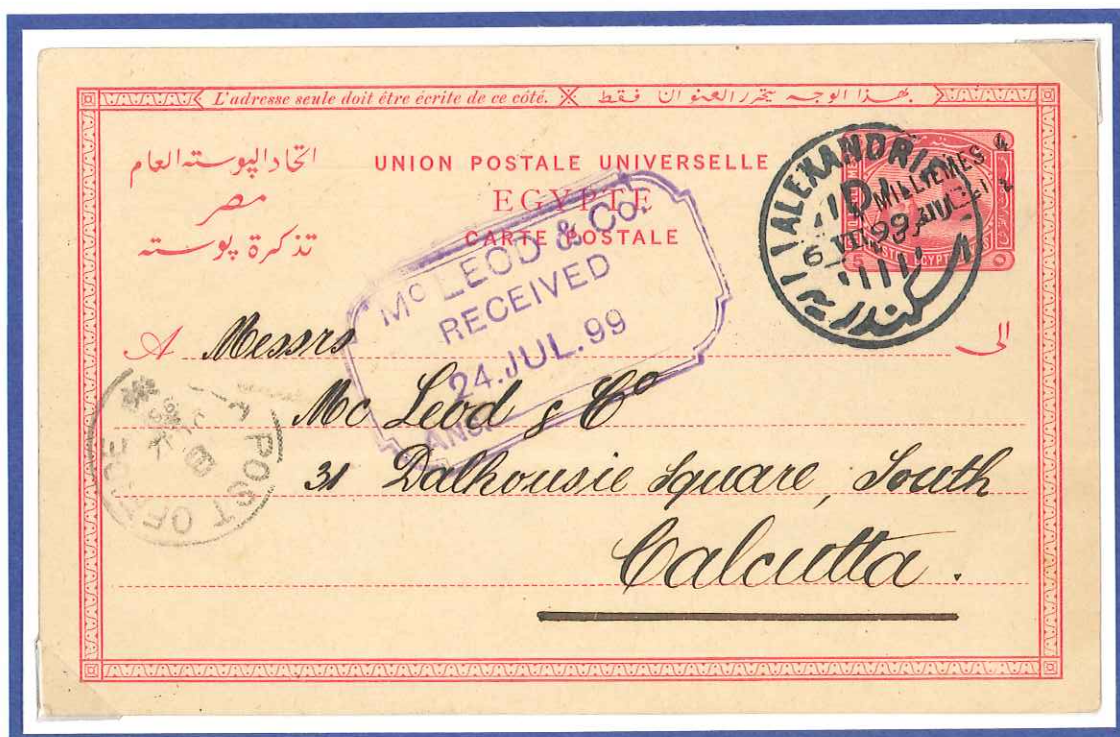 L'adresse seule doit être écrite de ce côté. بهذا الوجه يحرر العنوان فقط
اتحاد البوسته العام
مصر
تذكرة بوسته
UNION POSTALE UNIVERSELLE
EGYPTE
CARTE POSTALE
ALEXANDRIE
99
MILLIEMES 4
5
McLEOD & Co.
RECEIVED
24.JUL.99
ANS
A Messrs الى
Mc Leod & Co
31 Dalhousie Square, South
Calcutta.
POST OFFICE